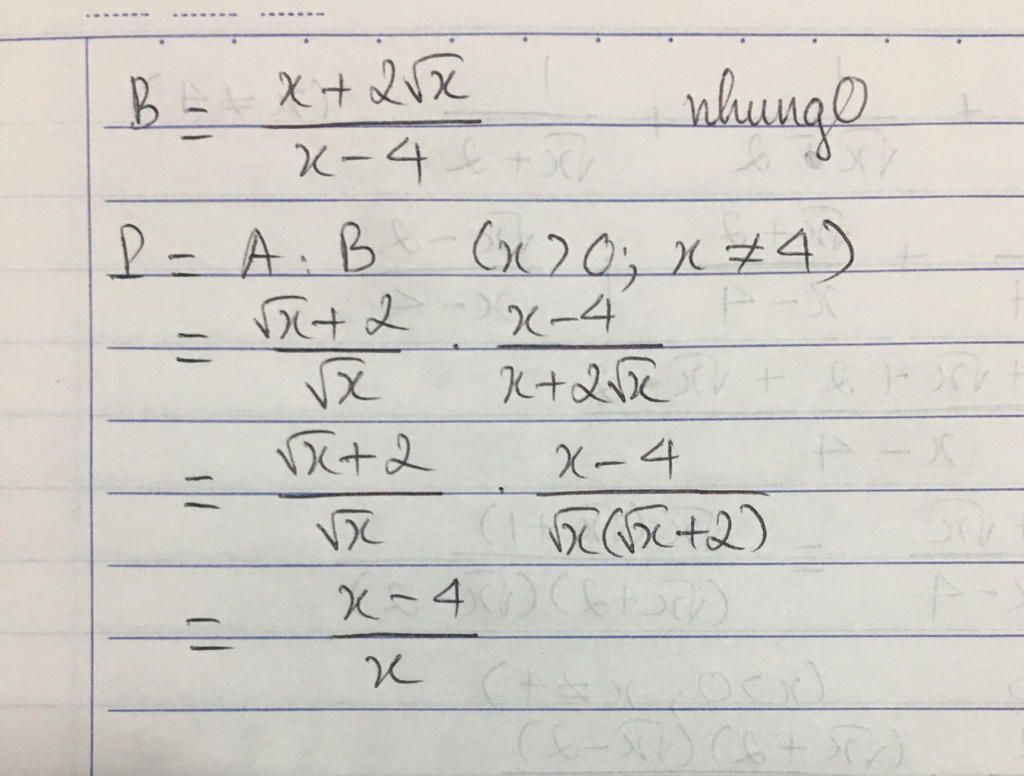 B = (x + 2√x)/(x - 4) nhung0
P = A : B (x > 0; x ≠ 4)
= (√x + 2)/√x . (x - 4)/(x + 2√x)
= (√x + 2)/√x . (x - 4)/(√x(√x + 2))
= (x - 4)/x